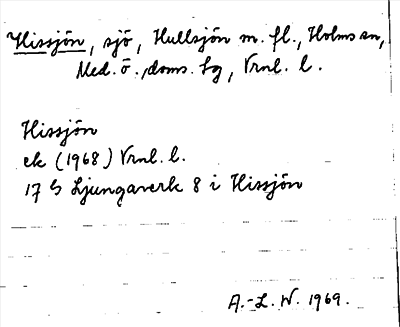 Hissjön, sjö, Hullsjön m. fl., Holms sn,
Med. ö., doms. hg, Vrnl. l.
Hissjön
ek (1968) Vrnl. l.
17 G Ljungaverk 8 i Hissjön
A.-L. N. 1969.